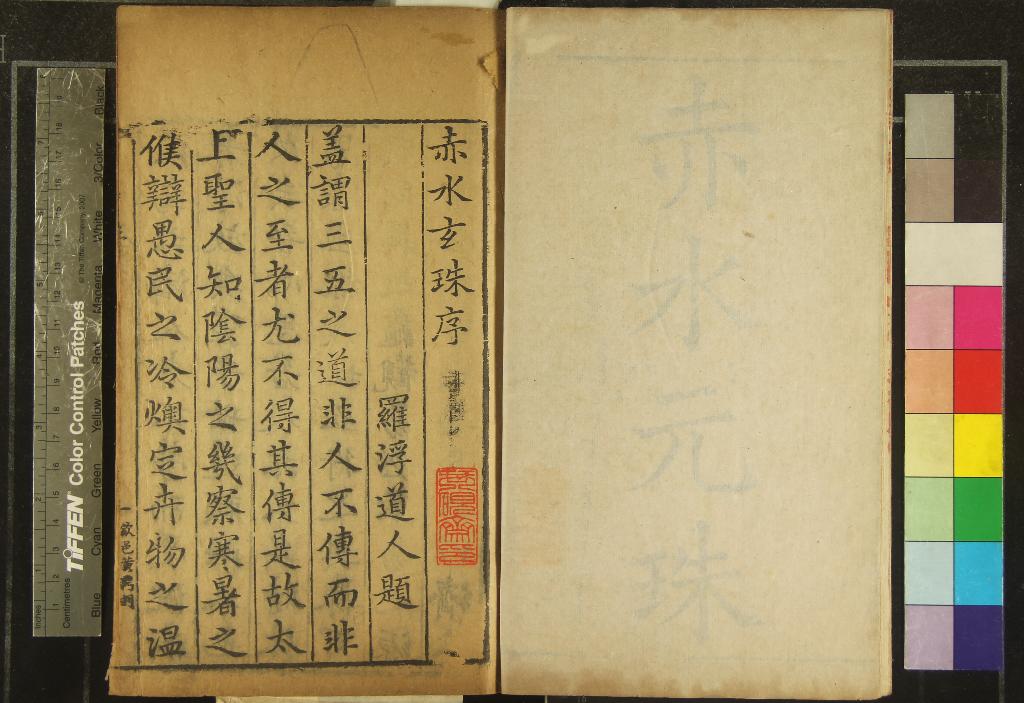 赤水元珠
赤水玄珠序
羅浮道人題
盖謂三五之道非人不傳而非
人之至者尤不得其傳是故太
上聖人知陰陽之幾察寒暑之
候辯愚民之冷燠定卉物之温
一
歙邑黄
Inches
Centimetres
TIFFEN Color Control Patches
© The Tiffen Company, 2007
Blue
Cyan
Green
Yellow
Red
Magenta
White
3/Color
Black